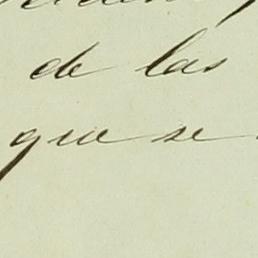 de las
que se